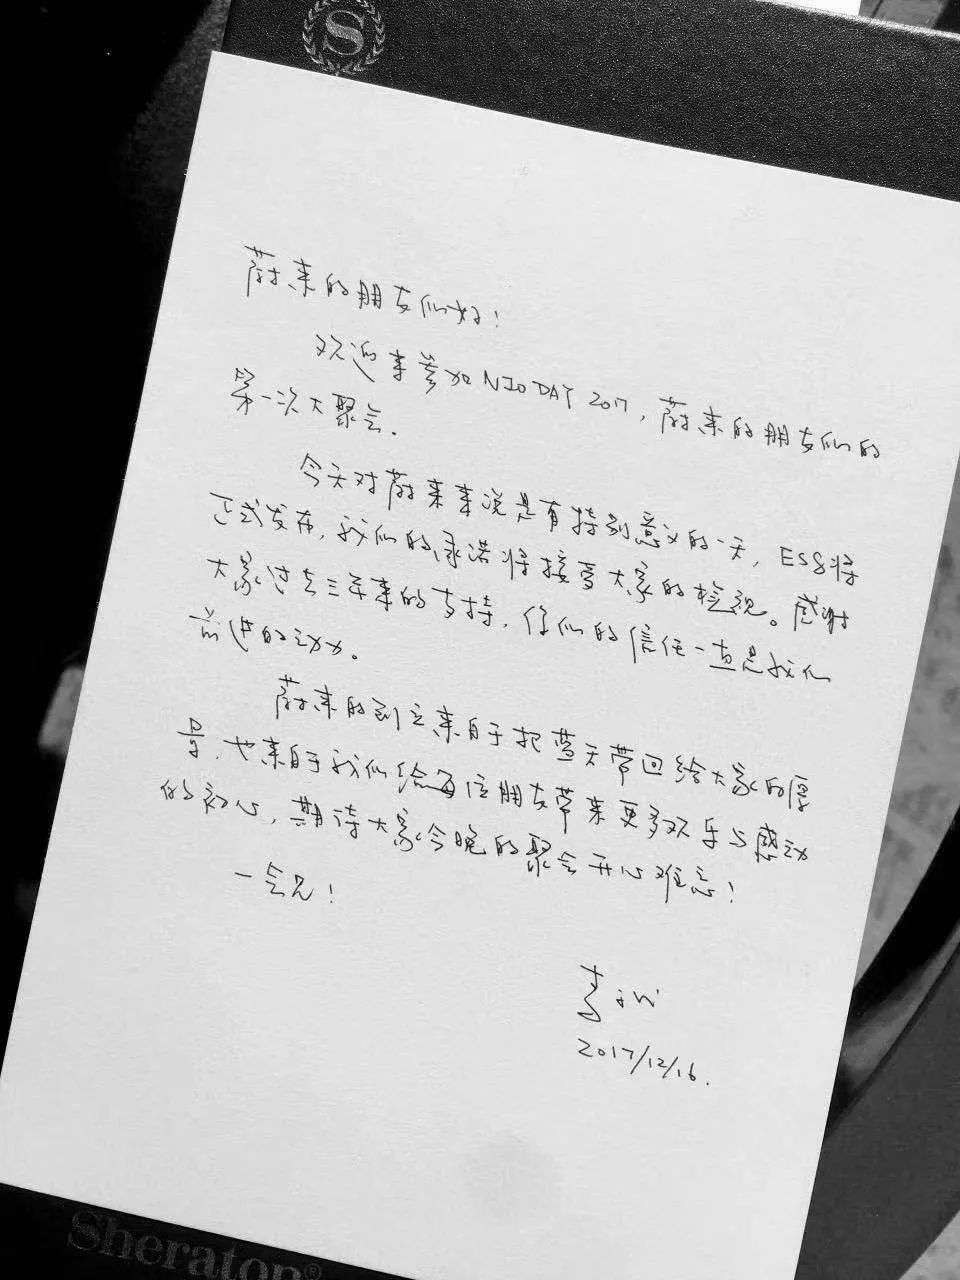 S
蔚来的朋友们好！
欢迎来参加NIO DAY 2017，蔚来的朋友们的
第一次大聚会．
今天对蔚来来说是有特别意义的一天，ES8将
正式发布，我们的承诺将接受大家的检视。感谢
大家过去三年来的支持，你们的信任一直是我们
前进的动力。
蔚来的创立来自于把蓝天带回给大家的愿
景，也来自于我们给每位朋友带来更多欢乐与感动
的初心，期待大家今晚的聚会开心难忘！
一会见！
李斌
2017/12/16.
Sheraton®